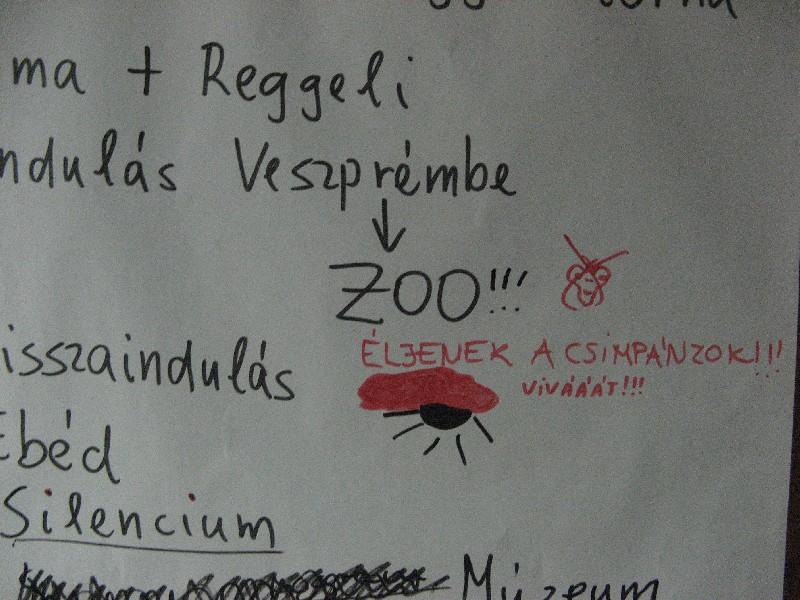 ma + Reggeli
ndulás Veszprémbe
ZOO!!!
isszaindulás
ÉLJENEK A CSIMPÁNZOK!!!
VIVÁÁÁT!!!
Ebéd
Silencium
Múzeum